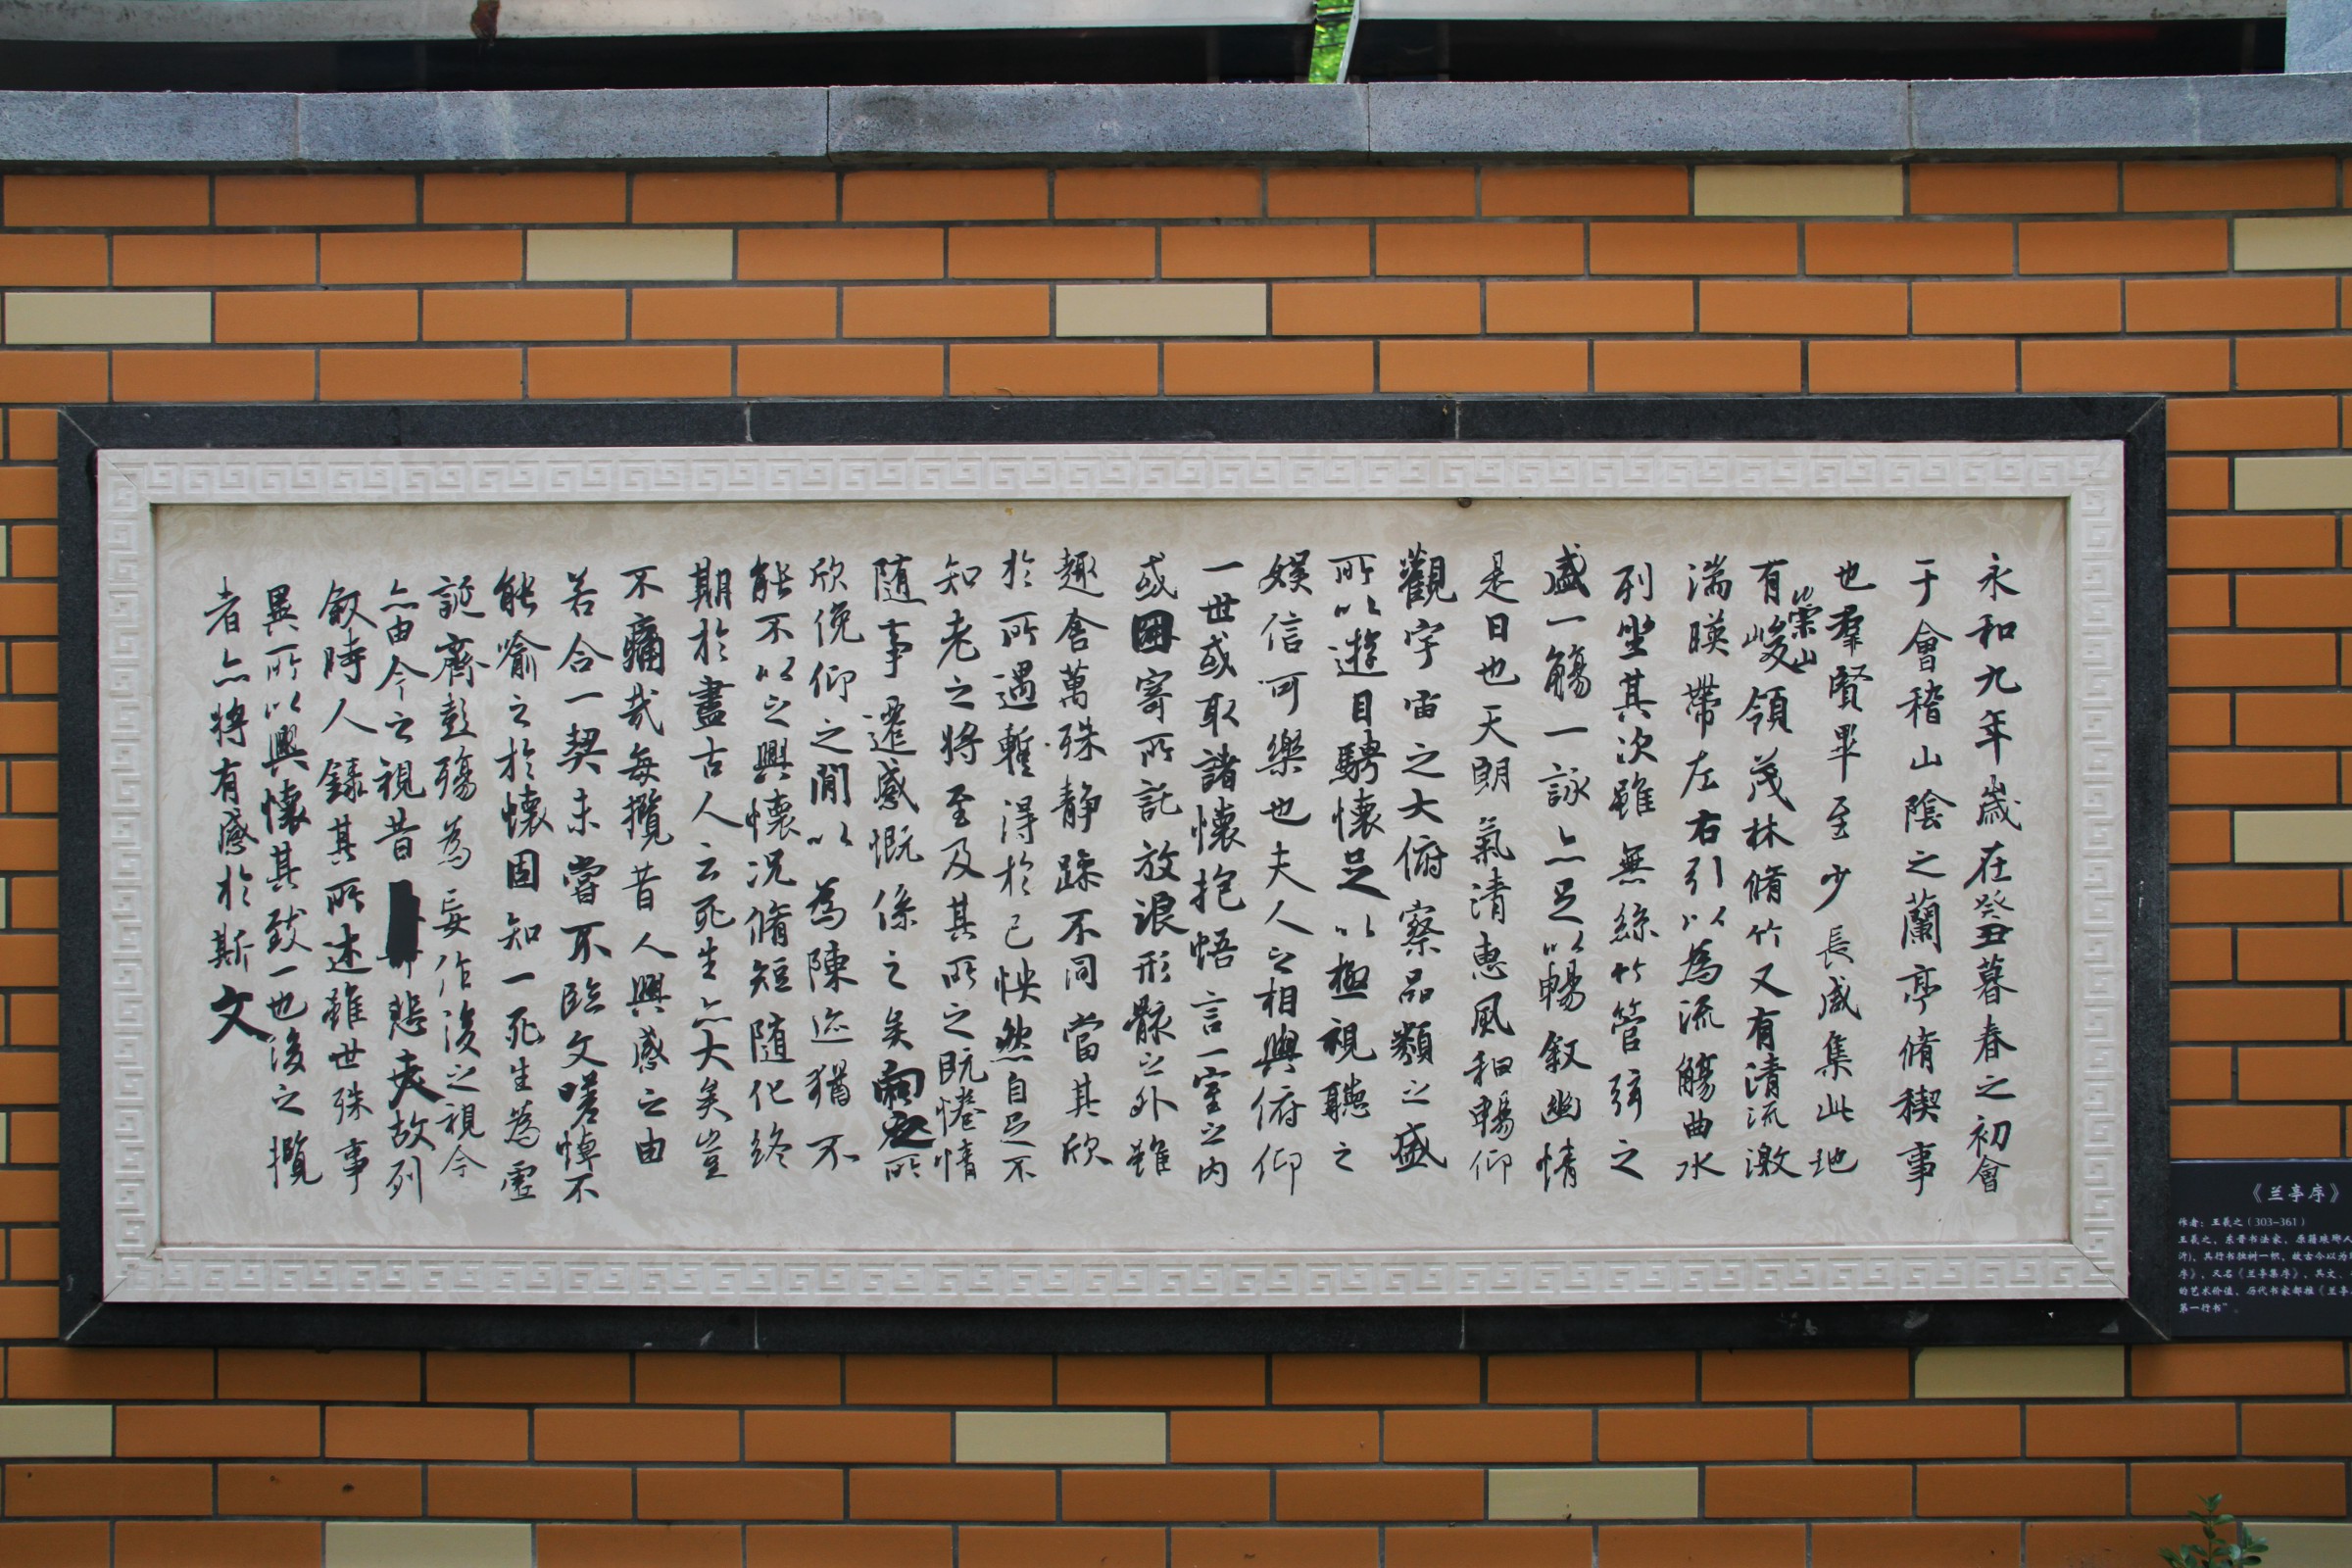 永和九年歲在癸丑暮春之初會
于會稽山陰之蘭亭脩稧事
也羣賢畢至少長咸集此地
有崇山峻領茂林脩竹又有清流激
湍暎帶左右引以為流觴曲水
列坐其次雖無絲竹管弦之
盛一觴一詠亦足以暢敘幽情
是日也天朗氣清惠風和暢仰
觀宇宙之大俯察品類之盛
所以遊目騁懷足以極視聽之
娛信可樂也夫人之相與俯仰
一世或取諸懷抱悟言一室之內
或因寄所託放浪形骸之外雖
趣舍萬殊靜躁不同當其欣
於所遇暫得於己怏然自足不
知老之將至及其所之既惓情
隨事遷感慨係之矣向之所
欣俛仰之閒以為陳迹猶不
能不以之興懷況脩短隨化終
期於盡古人云死生亦大矣豈
不痛哉每攬昔人興感之由
若合一契未嘗不臨文嗟悼不
能喻之於懷固知一死生為虛
誕齊彭殤為妄作後之視今
亦由今之視昔悲夫故列
敘時人錄其所述雖世殊事
異所以興懷其致一也後之攬
者亦將有感於斯文
《兰亭序》
作者：王羲之（303-361）
王羲之，东晋书法家，原籍琅琊人
沂)，其行书独树一帜，故古今以为
序》，又名《兰亭集序》，其文、
的艺术价值，历代书家都推《兰亭
第一行书”。